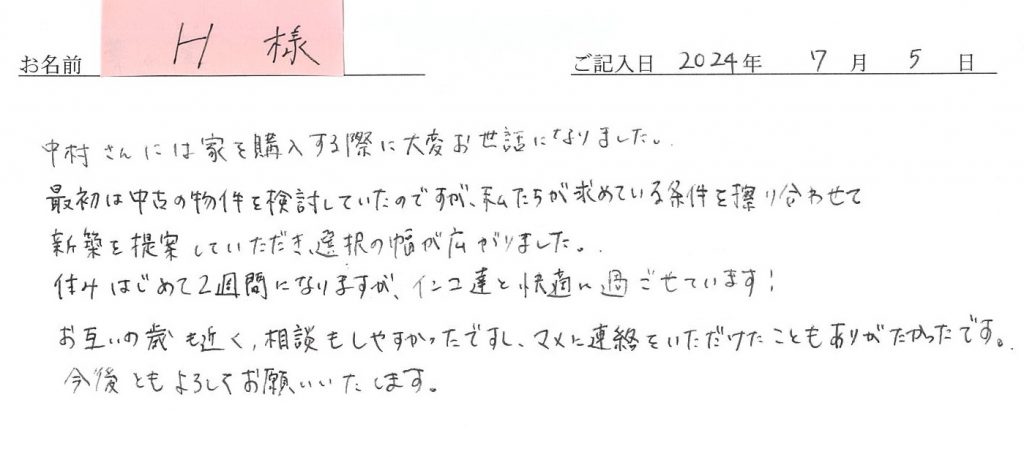 お名前 H 様 ご記入日 2024年 7月 5日
中村さんには家を購入する際に大変お世話になりました。
最初は中古の物件を検討していたのですが、私たちが求めている条件を擦り合わせて
新築を提案していただき、選択の幅が広がりました。
住みはじめて2週間になりますが、インコ達と快適に過ごせています!
お互いの歳も近く、相談もしやすかったですし、マメに連絡をいただけたこともありがたかったです。
今後ともよろしくお願いいたします。